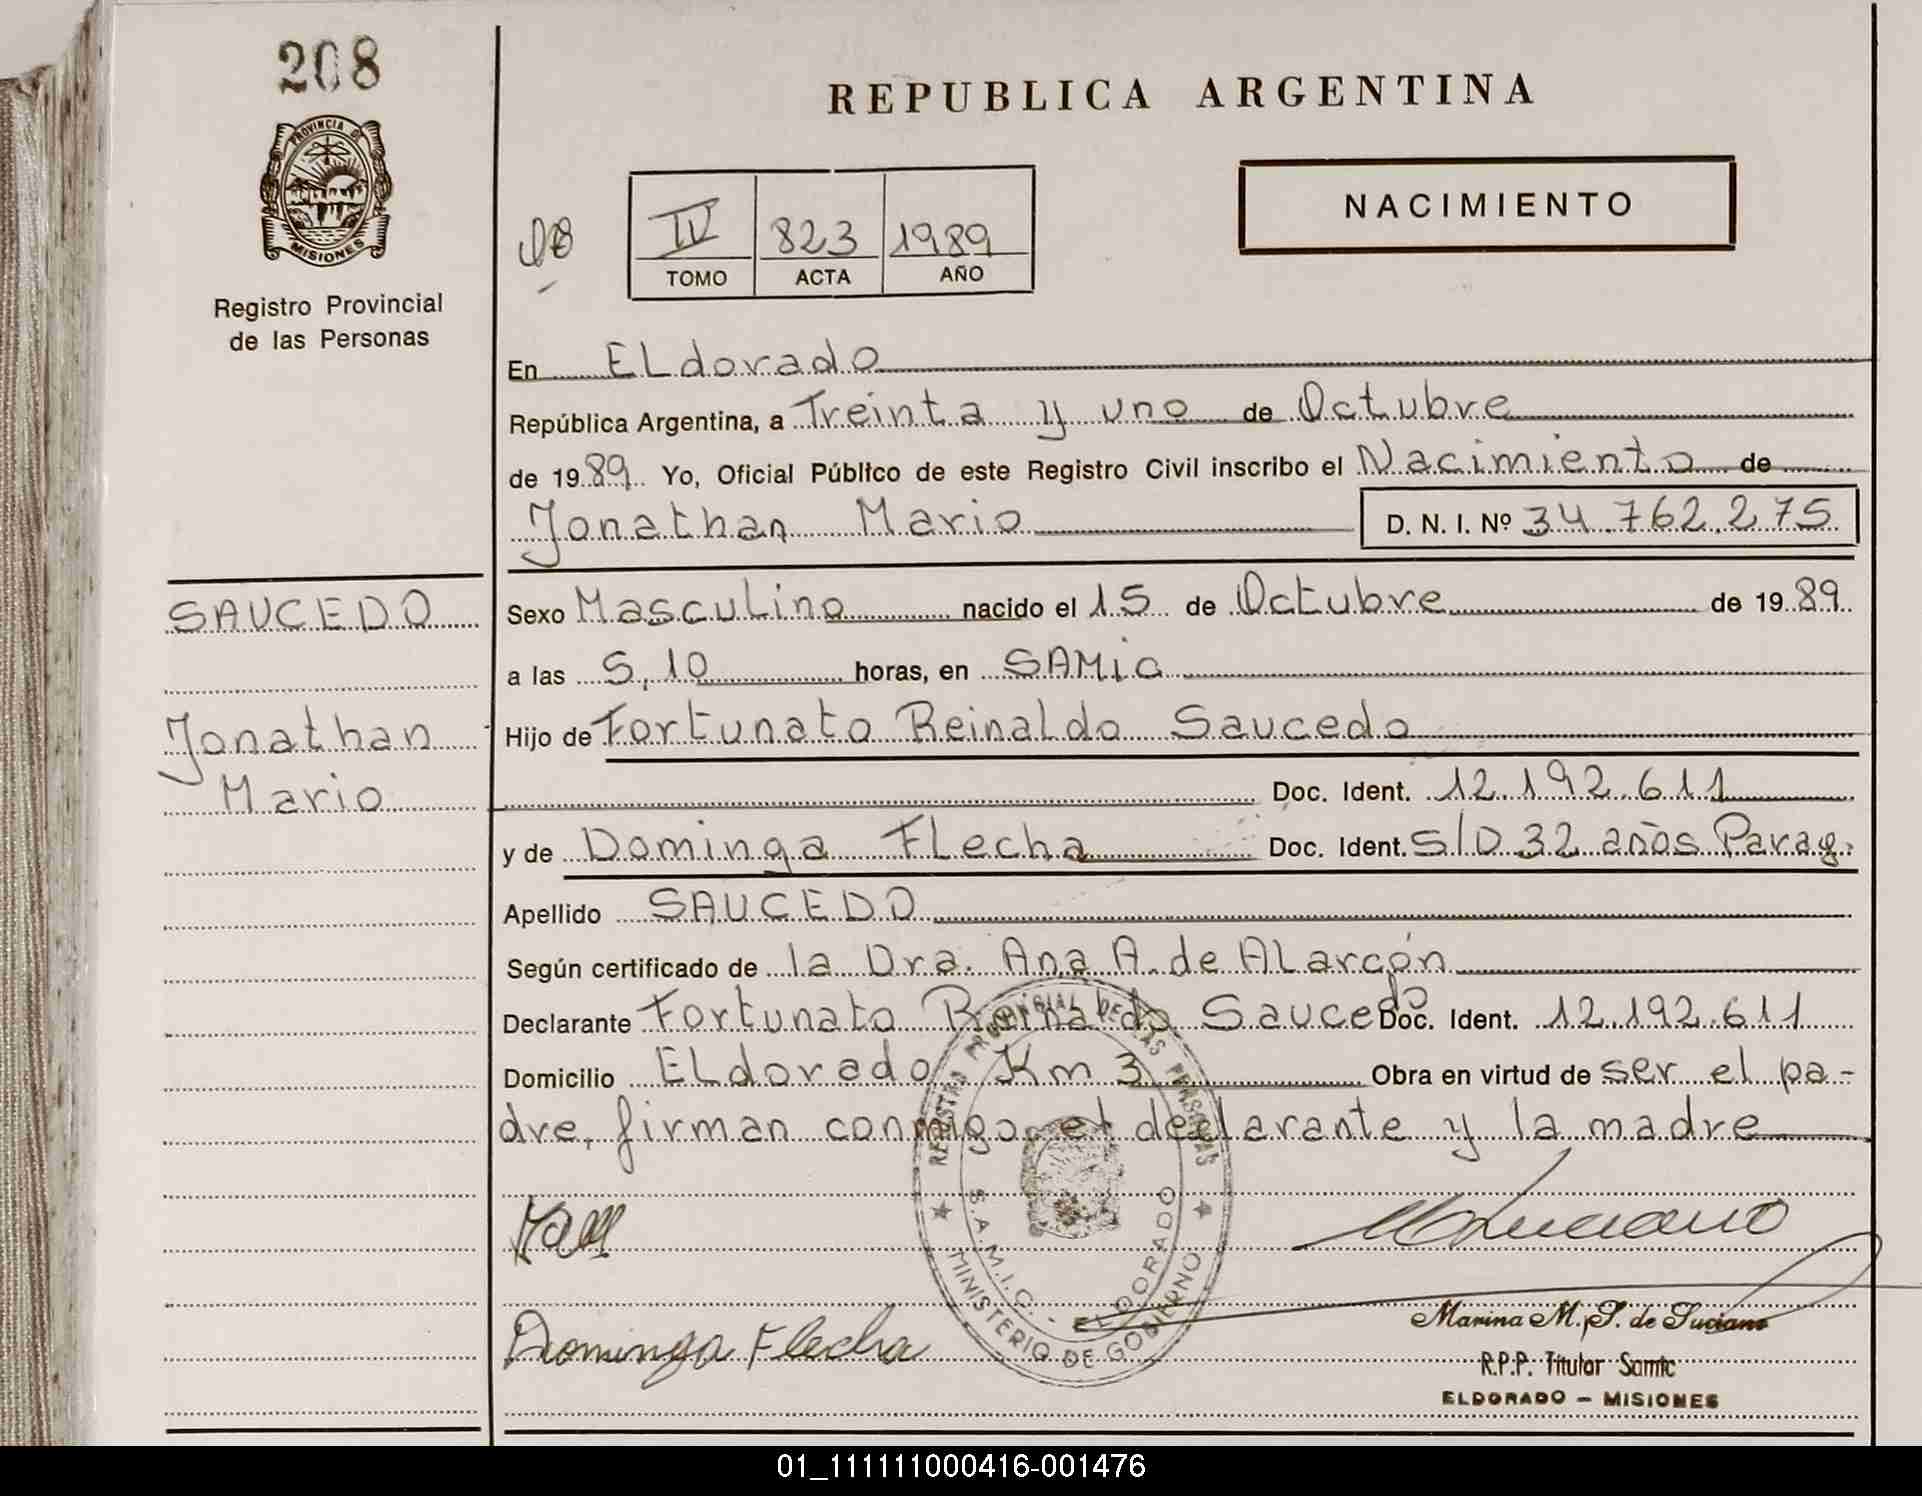 208
PROVINCIA DE
MISIONES
Registro Provincial
de las Personas
SAUCEDO
Jonathan
Mario
REPUBLICA ARGENTINA
NACIMIENTO
IV 823 1989
TOMO ACTA AÑO
En ELdorado
República Argentina, a Treinta y uno de Octubre
de 1989 Yo, Oficial Público de este Registro Civil inscribo el Nacimiento de
Jonathan Mario D. N. I. Nº 34.762.275
Sexo Masculino nacido el 15 de Octubre de 1989
a las 5,10 horas, en SAMic
Hijo de Fortunato Reinaldo Saucedo
Doc. Ident. 12.192.611
y de Dominga Flecha Doc. Ident. S/D 32 años Parag.
Apellido SAUCEDO
Según certificado de la Dra. Ana A. de ALarcón
Declarante Fortunato Reinaldo Saucedo Doc. Ident. 12.192.611
Domicilio ELdorado Km 3 Obra en virtud de ser el pa-
dre, firman conmigo el declarante y la madre
REGISTRO PROVINCIAL DE LAS PERSONAS
S.A.M.I.C. - ELDORADO
MINISTERIO DE GOBIERNO
Dominga Flecha
Marina M. S. de Luciano
R.P.P. Titular Samic
ELDORADO - MISIONES
01_111111000416-001476